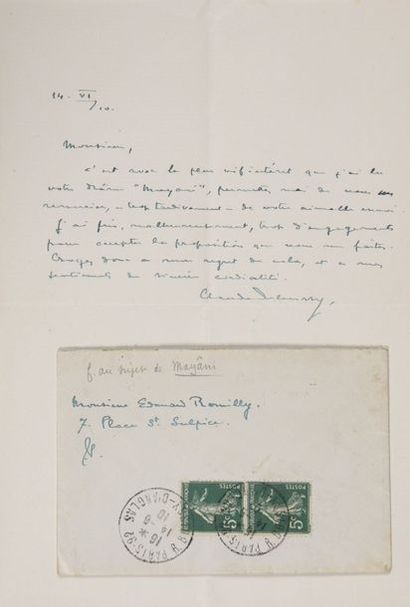 14. VI
/10.
Monsieur,
c'est avec le plus vif intérêt que j'ai lu
votre drame "Mayâni", permettez moi de vous en
remercier, – trop tardivement – de votre aimable envoi.
J'ai pris, malheureusement, trop d'engagements
pour accepter la proposition que vous me faites.
Croyez donc à mon regret de cela, et à mes
sentiments de sincère cordialité.
Claude Debussy.
au sujet de Mayâni
Monsieur Edouard Rouilly.
7. Place St. Sulpice.
POSTES
5c
POSTES
5c
PARIS-92
D'ANGLAS